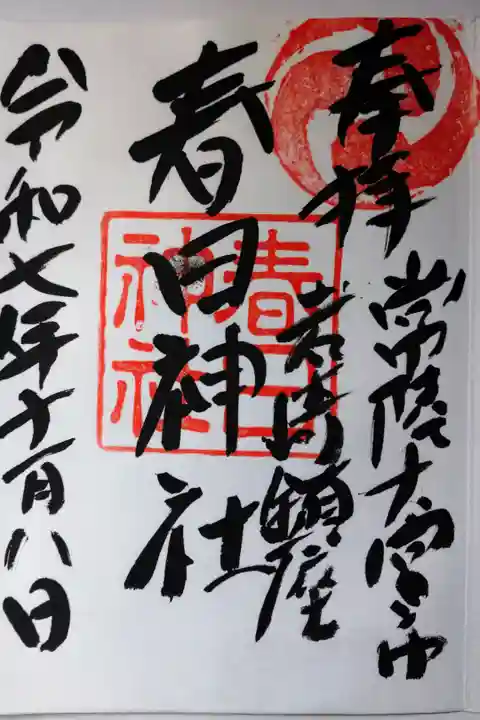 奉拝
常陸大宮市
鎮座
春日神社
春日
神社
令和七年十一月八日